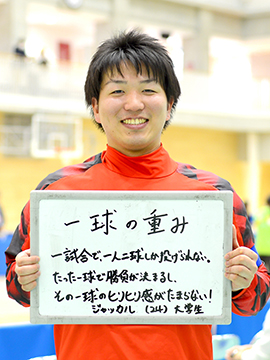 一球の重み
一試合で一人二球しか投げられない。
たった一球で勝負が決まるし、
その一球のヒリヒリ感がたまらない!
ジャッカル (24) 大学生